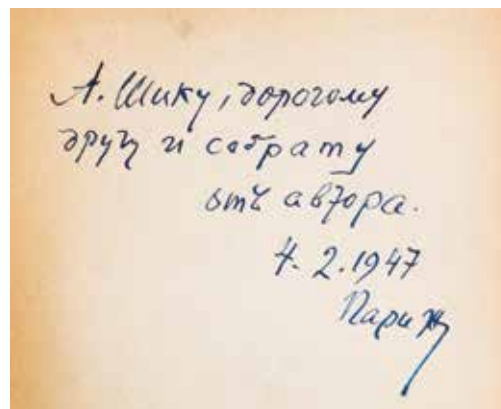 А. Шику, дорогому
другу и собрату
отъ автора.
4. 2. 1947
Париж